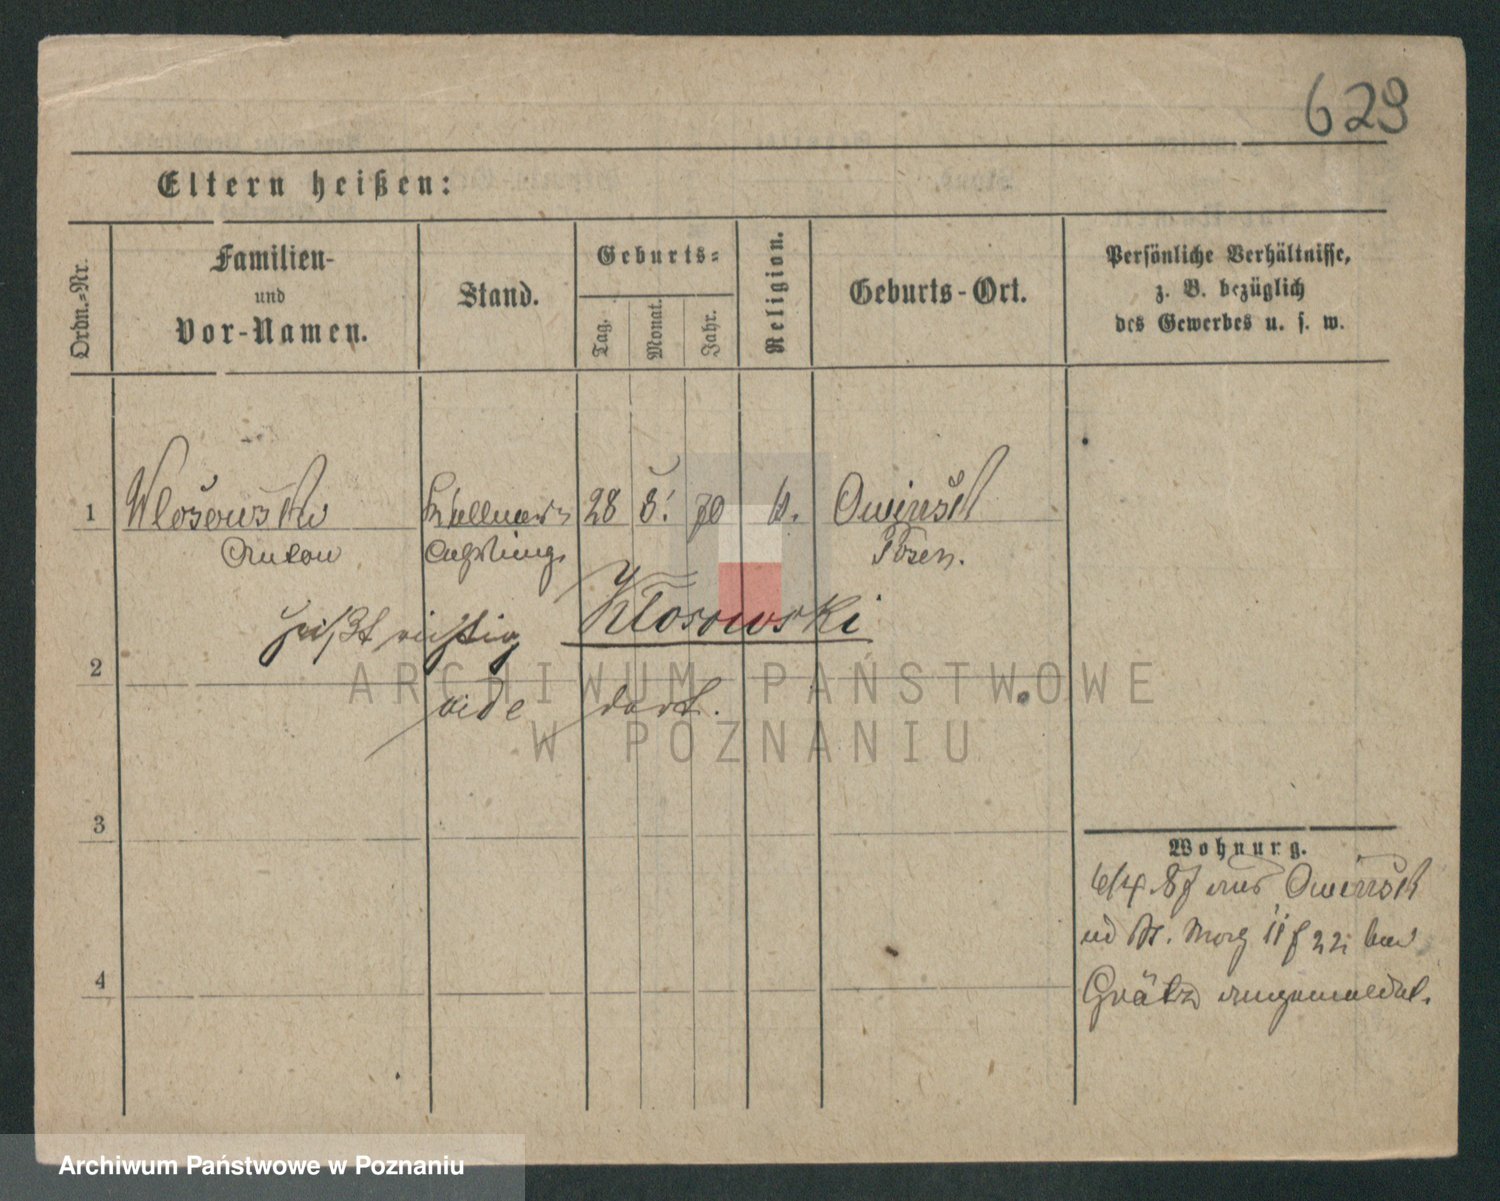 629
Eltern heißen:
Ordn.-Nr.
Familien-
und
Vor-Namen.
Stand.
Geburts-
Tag.
Monat.
Jahr.
Religion.
Geburts-Ort.
Persönliche Verhältnisse,
z. B. bezüglich
des Gewerbes u. s. w.
1 Wlosowski Kellner 28 5. 70 k. Owinsk
Anton Posen.
heißt richtig Klosowski
2
vide dort.
3
4
Wohnung.
6/4 aus Owinsk
Grätz angemeldet.
ARCHIWUM PAŃSTWOWE
W POZNANIU
Archiwum Państwowe w Poznaniu